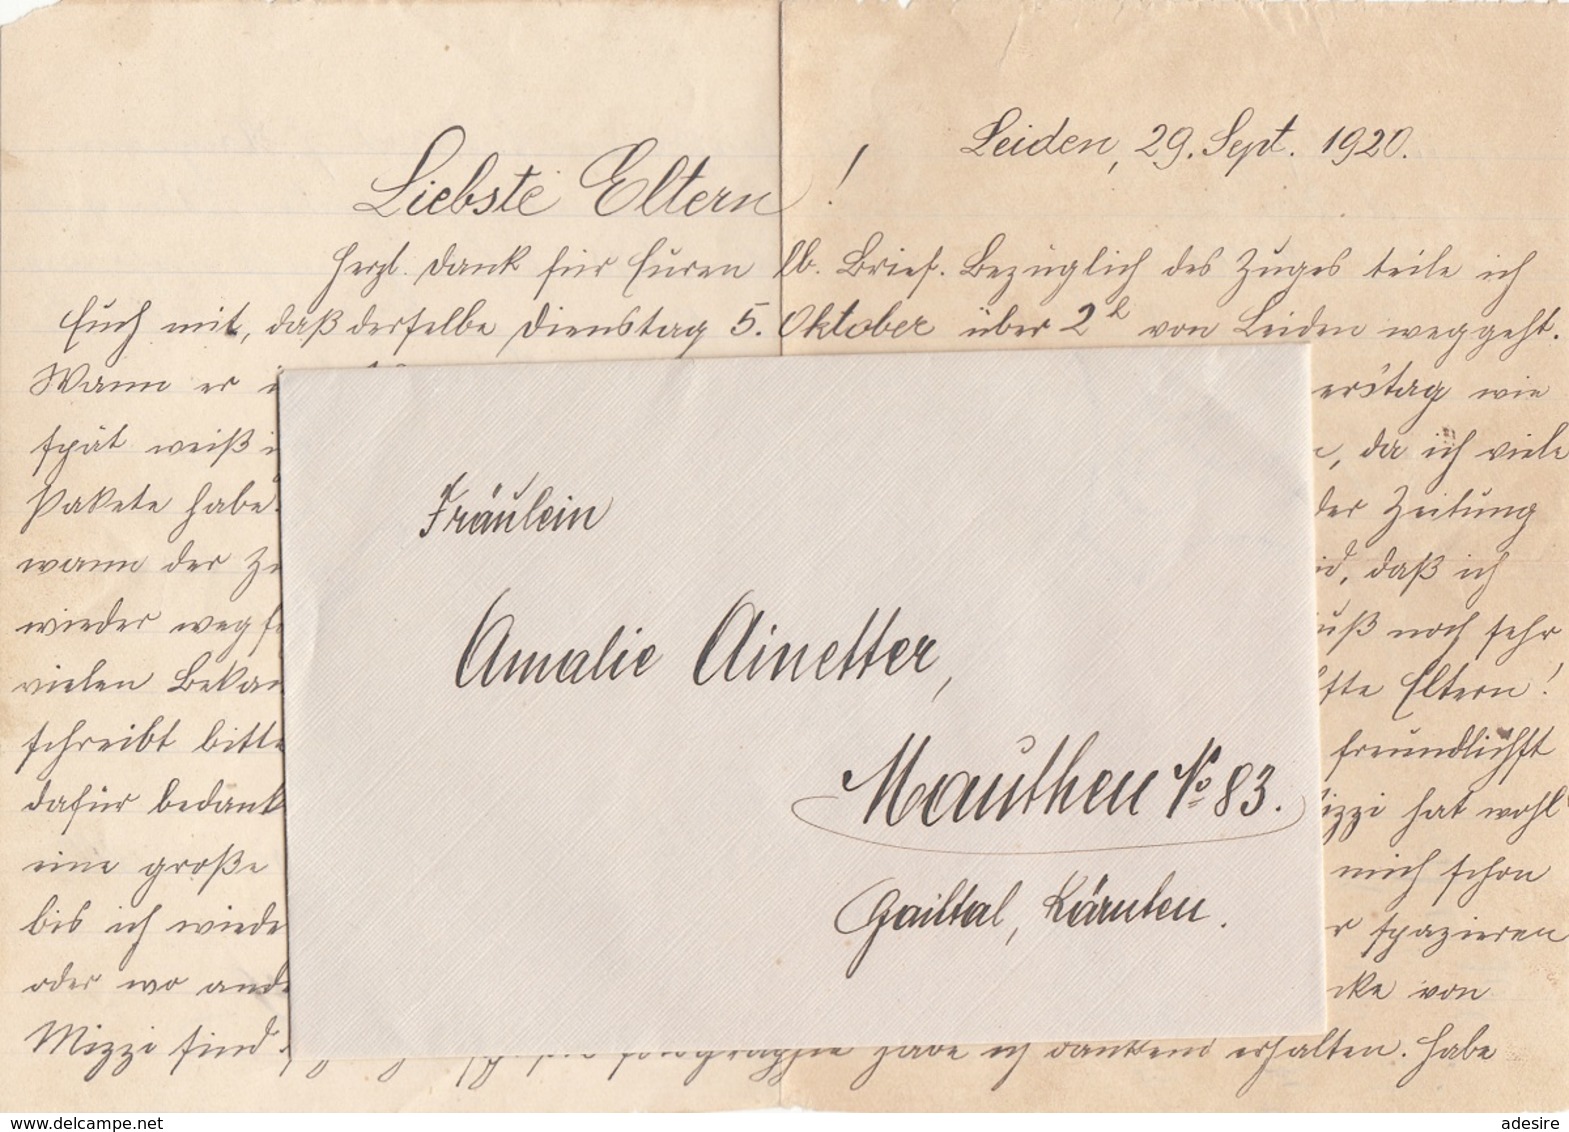 Leiden, 29. Sept. 1920.
Liebste Eltern!
Herzl. Dank für Euren lb. Brief. Bezüglich des Zuges teile ich
Euch mit, daß derselbe Dienstag 5. Oktober über 2h von Leiden weggeht.
Wann er erstag wie
spät weiß i , da ich viele
Pakete habe. der Zeitung
wann der Zu id, daß ich
wieder weg uß noch sehr
vielen Bekan ste Eltern!
schreibt bitte freundlichst
dafür bedank izzi hat wohl
eine große mich schon
bis ich wiede r spazieren
oder wo ande cke von
Mizzi sind Fotographie habe ich dankend erhalten. Habe
Fräulein
Amalie Ainetter,
Mauthen No 83.
Gailtal, Kärnten.
www.delcampe.net
adesire